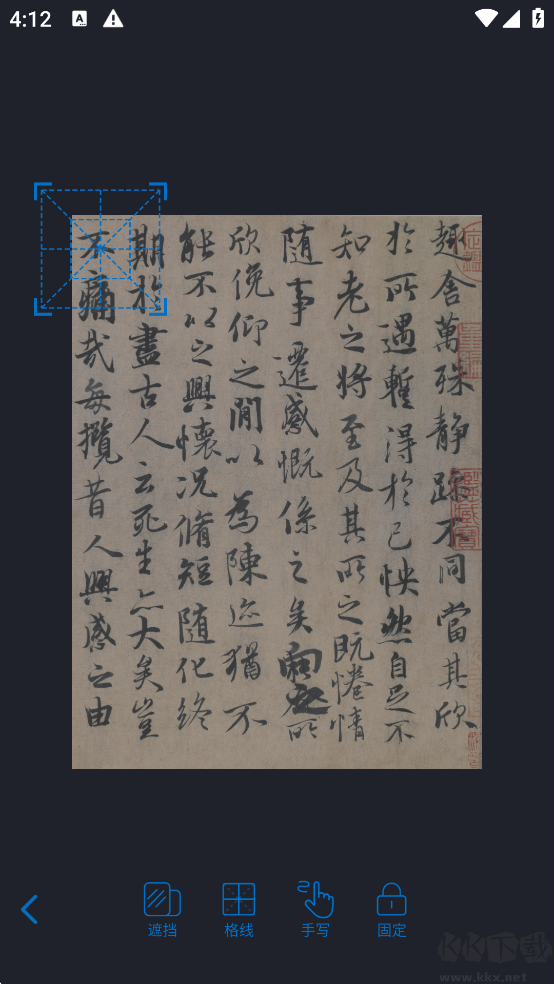 4:12
趣舍萬殊静躁不同當其欣
於所遇暫得於己怏然自足不
知老之將至及其所之既惓情
随事遷感慨係之矣向之所
欣俛仰之閒以為陳迹猶不
能不以之興懷况脩短随化終
期於盡古人云死生亦大矣豈
不痛哉每攬昔人興感之由
遮挡
格线
手写
固定
KK下载
www.kkx.net